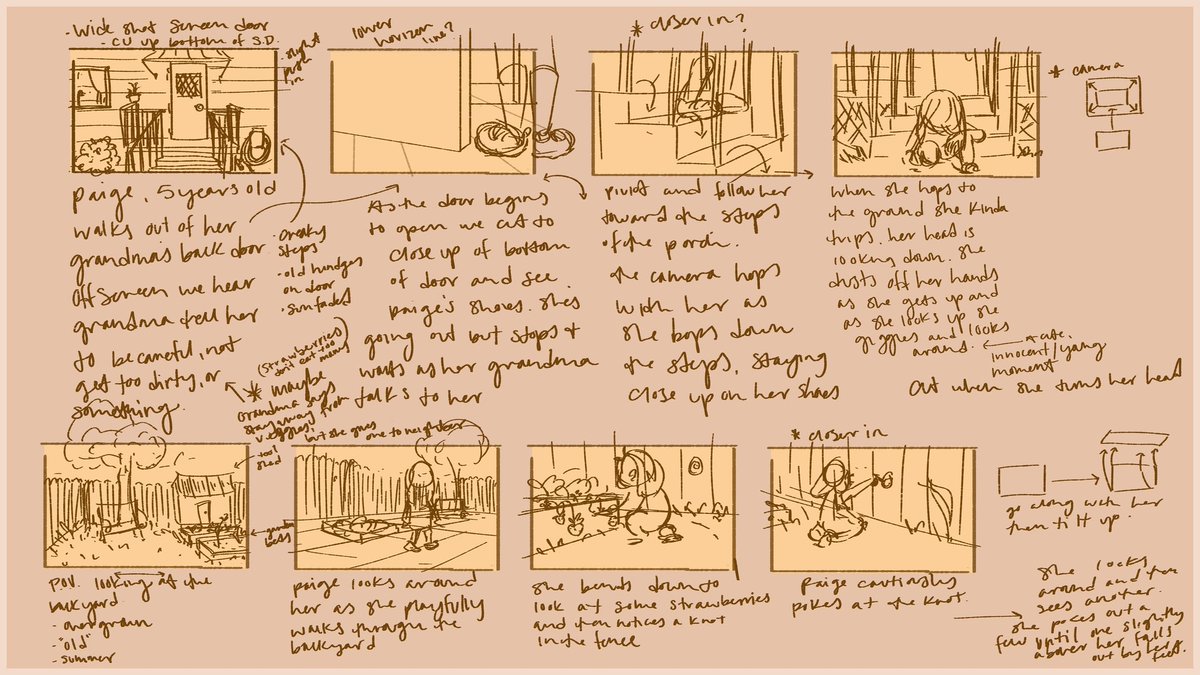 - wide shot screen door
- CU up bottom of S.D.
- slight push in
lower horizon line?
* closer in?
* camera
Paige, 5 years old
walks out of her
grandma's back door.
Off screen we hear
grandma tell her
to be careful, not
get too dirty, or
something.
- creaky steps
- old hindges on door
- sun faded
(strawberries don't eat too many)
* maybe
grandma says
stay away from
veggies!
but she gives one to neighbor
As the door begins
to open we cut to
close up of bottom
of door and see
paige's shoes. She's
going out but stops +
waits as her grandma
talks to her
pivot and follow her
toward the steps
of the porch.
the camera hops
with her as
she bops down
the steps, staying
close up on her shoes
when she hops to
the ground she kinda
trips. her head is
looking down. she
dusts off her hands
as she gets up and
as she looks up she
giggles and looks
around.
cute.
innocent/young
moment
Cut when she turns her head
tool shed
garden beds
P.O.V. looking at the
backyard
- overgrown
- "old"
- summer
paige looks around
her as she playfully
walks through the
backyard
she bends down to
look at some strawberries
and then notices a knot
in the fence
* closer in
Paige cautiously
pokes at the knot.
go along with her
then tilt up.
she looks
around and then
sees another.
she pokes out a
few until one slightly
above her falls
out by her
feet.